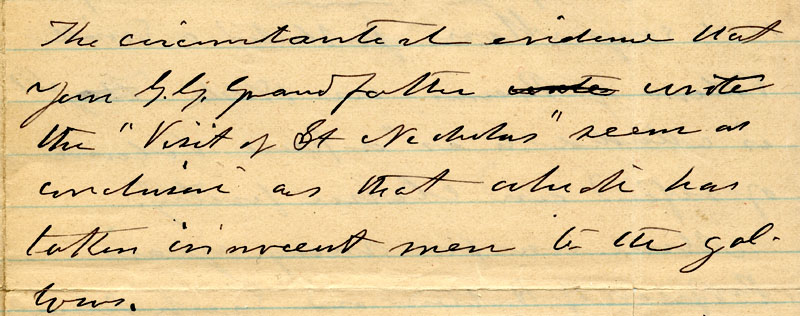 The circumstantial evidence that
your G.G. Grandfather wrote wrote
the "Visit of St Nicholas" seem as
conclusive as that which has
taken innocent men to the gal-
lows.